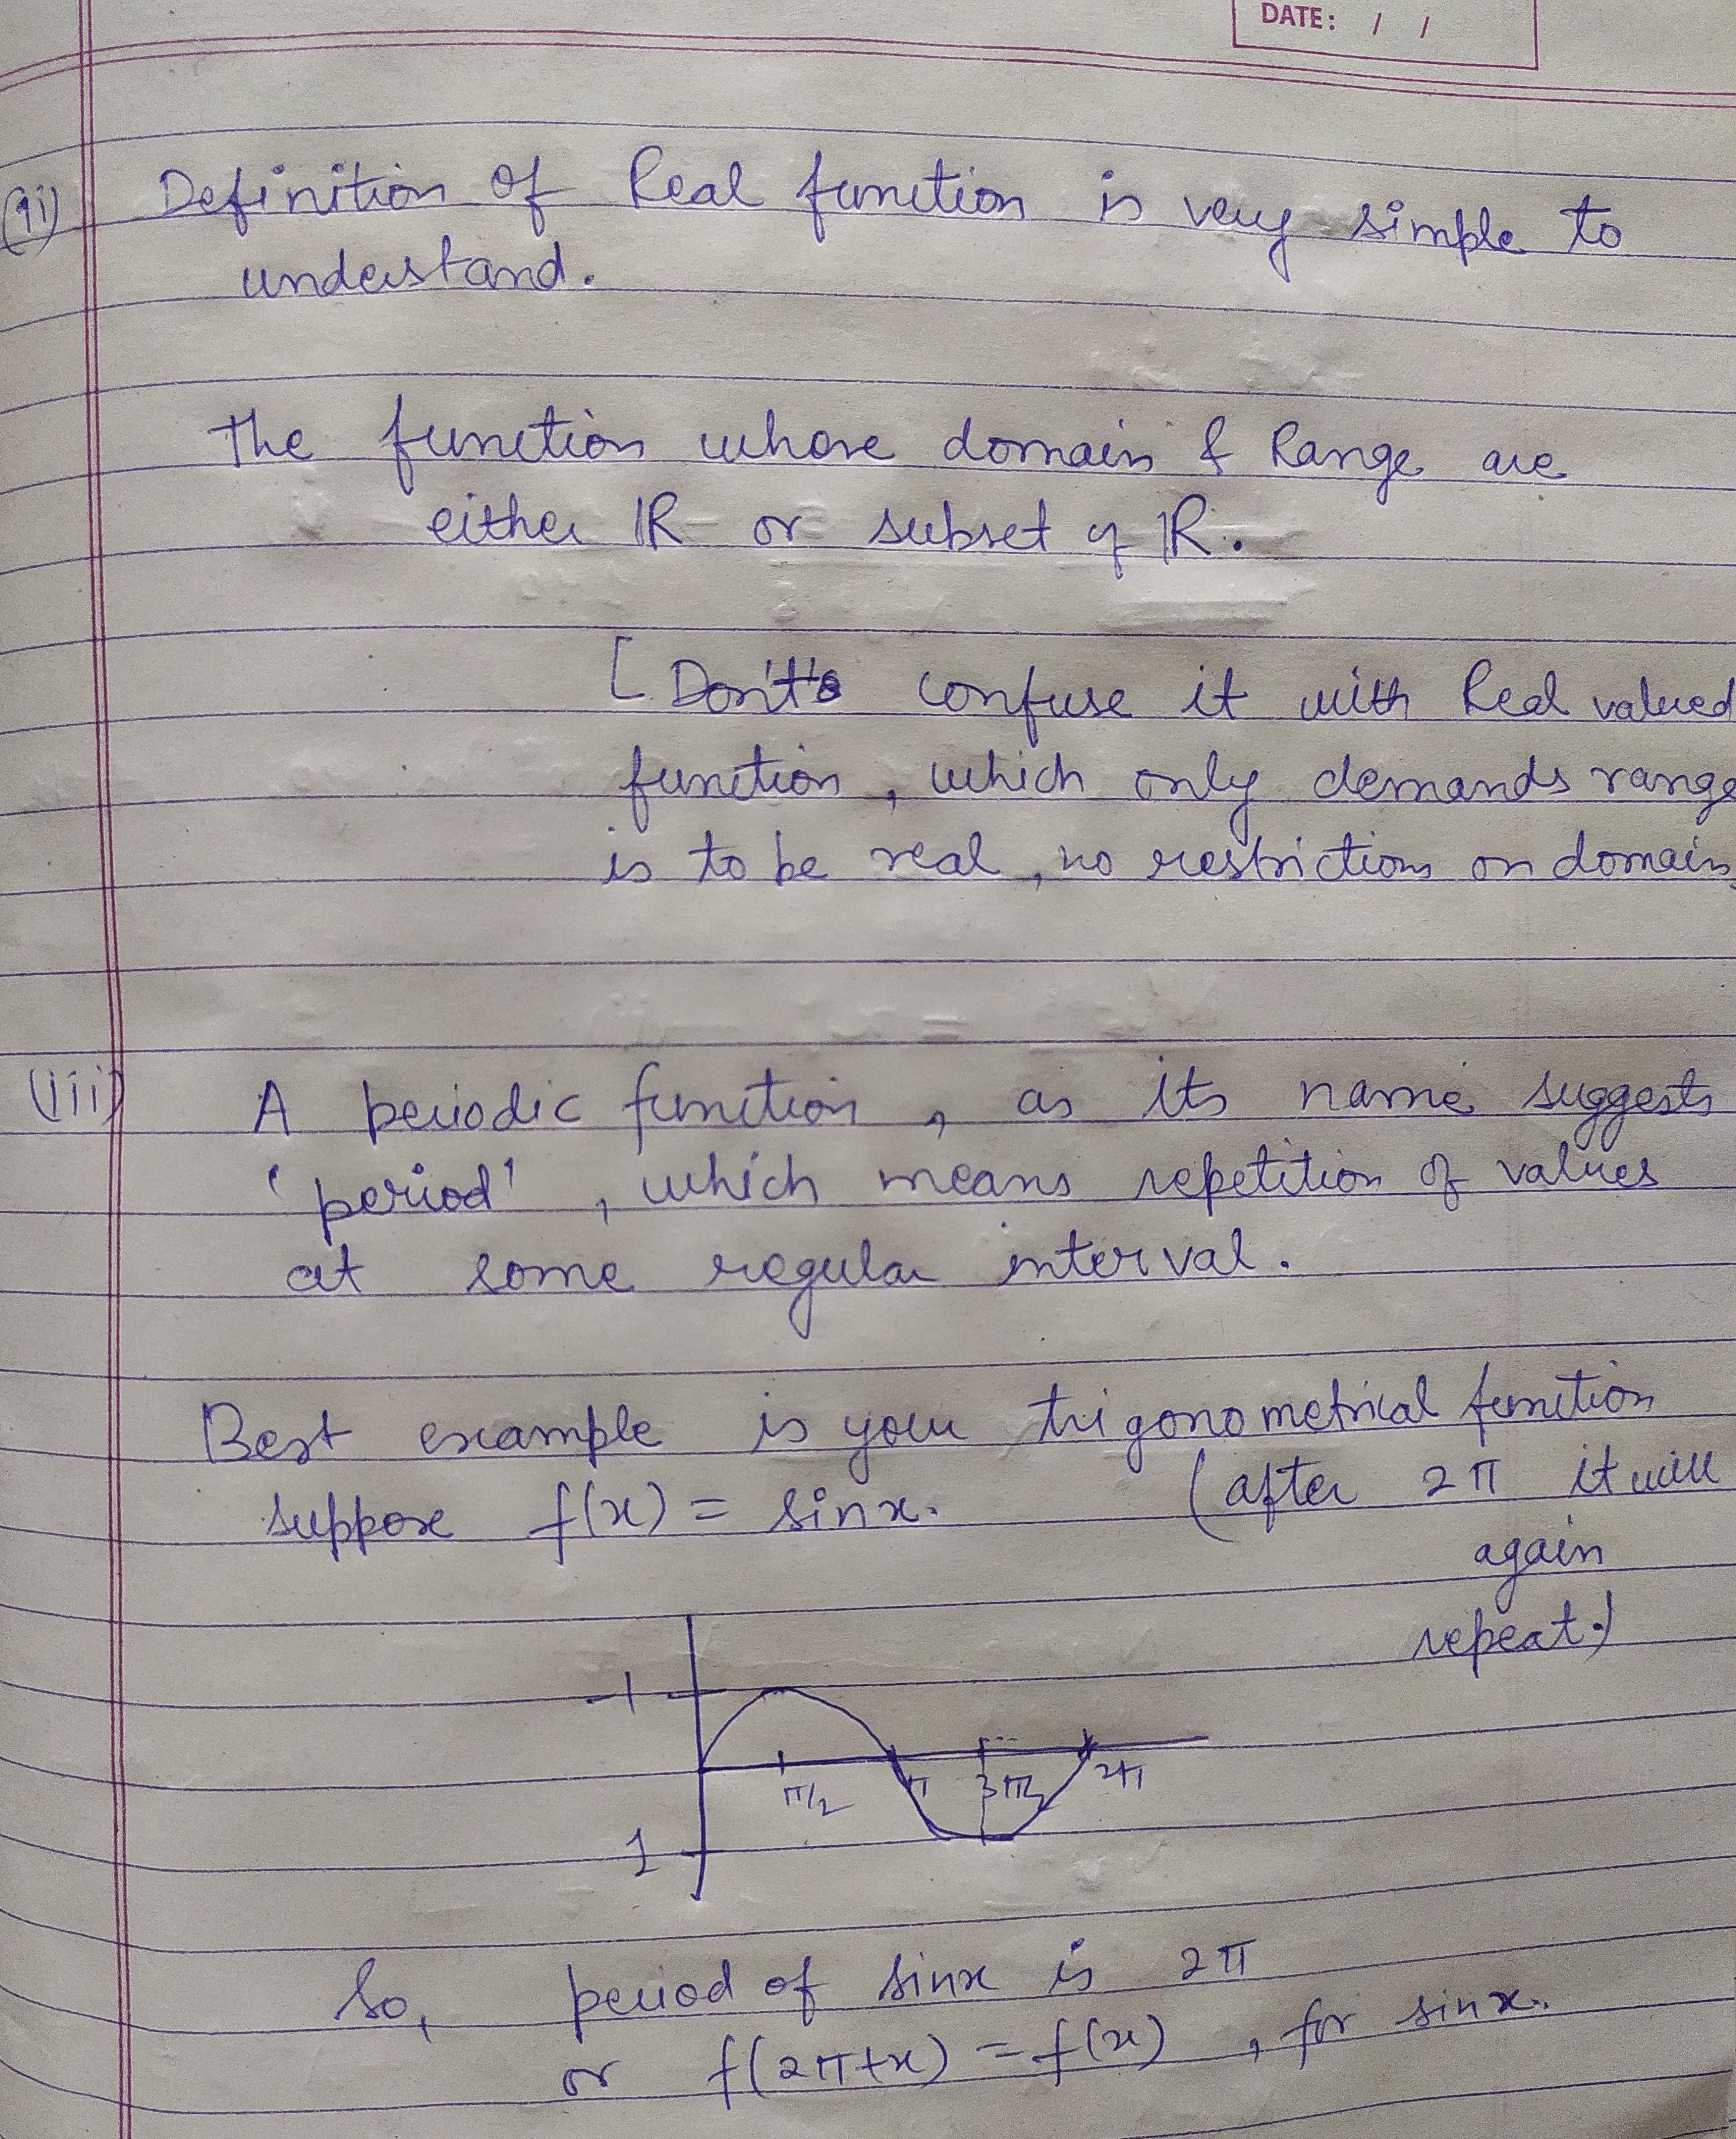 DATE: / /
(ii) Definition of Real function is very simple to
understand.
The function whose domain & Range are
either ℝ or subset of ℝ.
[Don't confuse it with Real valued
function, which only demands range
is to be real, no restrictions on domain
(iii) A periodic function, as its name suggests
'period', which means repetition of values
at some regular interval.
Best example is your trigonometrical function
suppose f(x) = sinx. (after 2π it will
again
repeat.)
-1
π/2 π 3π/2 2π
1
So, period of sinx is 2π
or f(2π+x) = f(x), for sinx.